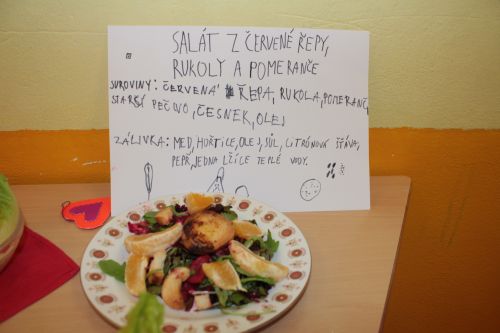 SALÁT Z ČERVENÉ ŘEPY,
RUKOLY A POMERANČE
SUROVINY: ČERVENÁ ŘEPA, RUKOLA, POMERANČ,
STARŠÍ PEČIVO, ČESNEK, OLEJ
ZÁLIVKA: MED, HOŘTICE, OLEJ, SŮL, CITRÓNOVÁ ŠŤÁVA,
PEPŘ, JEDNA LŽÍCE TEPLÉ VODY.